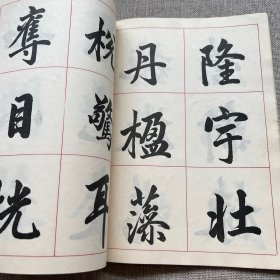 隆宇壮
丹楹藻
驚耳
奪目